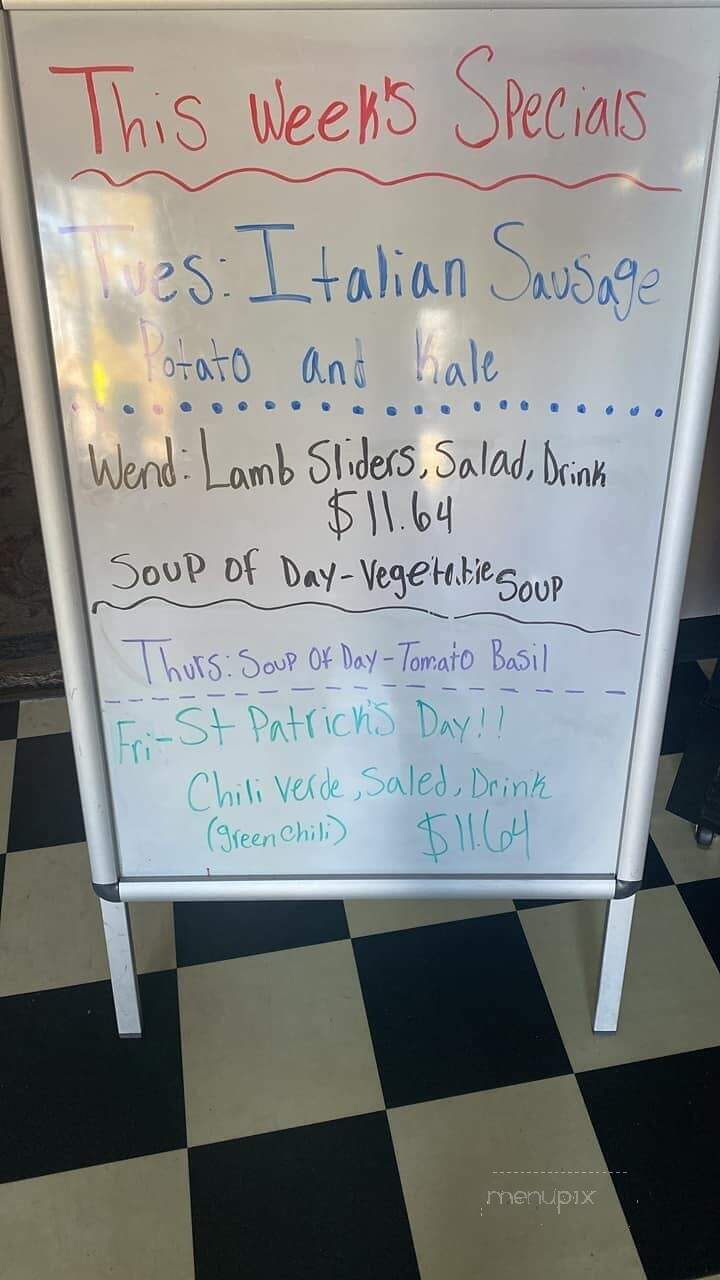 This Week's Specials
Tues: Italian Sausage
Potato and Kale
Wend: Lamb Sliders, Salad, Drink
$11.64
Soup of Day - Vegetable Soup
Thurs: Soup Of Day - Tomato Basil
Fri - St Patrick's Day!!
Chili Verde, Saled, Drink
(green chili) $11.64
menupix